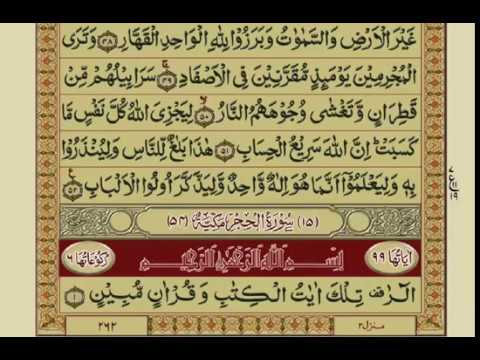 غَيۡرَ الۡاَرۡضِ وَالسَّمٰوٰتُ وَبَرَزُوۡا لِلّٰهِ الۡوَاحِدِ الۡقَهَّارِ ﴿۴۸﴾ وَتَرَى
الۡمُجۡرِمِيۡنَ يَوۡمَئِذٍ مُّقَرَّنِيۡنَ فِى الۡاَصۡفَادِ ﴿۴۹﴾ سَرَابِيۡلُهُمۡ مِّنۡ
قَطِرَانٍ وَّتَغۡشٰى وُجُوۡهَهُمُ النَّارُ ﴿۵۰﴾ لِيَجۡزِىَ اللّٰهُ كُلَّ نَفۡسٍ مَّا
كَسَبَتۡ اِنَّ اللّٰهَ سَرِيۡعُ الۡحِسَابِ ﴿۵۱﴾ هٰذَا بَلٰغٌ لِّلنَّاسِ وَلِيُنۡذَرُوۡا
بِهٖ وَلِيَعۡلَمُوۡۤا اَنَّمَا هُوَ اِلٰهٌ وَّاحِدٌ وَّلِيَذَّكَّرَ اُولُوا الۡاَلۡبَابِ ﴿۵۲﴾
(۱۵) سُوۡرَةُ الۡحِجۡرِ مَكِّيَّةٌ (۵۴)
اٰيَاتُهَا ۹۹
بِسۡمِ اللّٰهِ الرَّحۡمٰنِ الرَّحِيۡمِ
رُكُوۡعَاتُهَا ۶
الٓرٰ تِلۡكَ اٰيٰتُ الۡكِتٰبِ وَقُرۡاٰنٍ مُّبِيۡنٍ ﴿۱﴾
منزل۳
۲۶۲